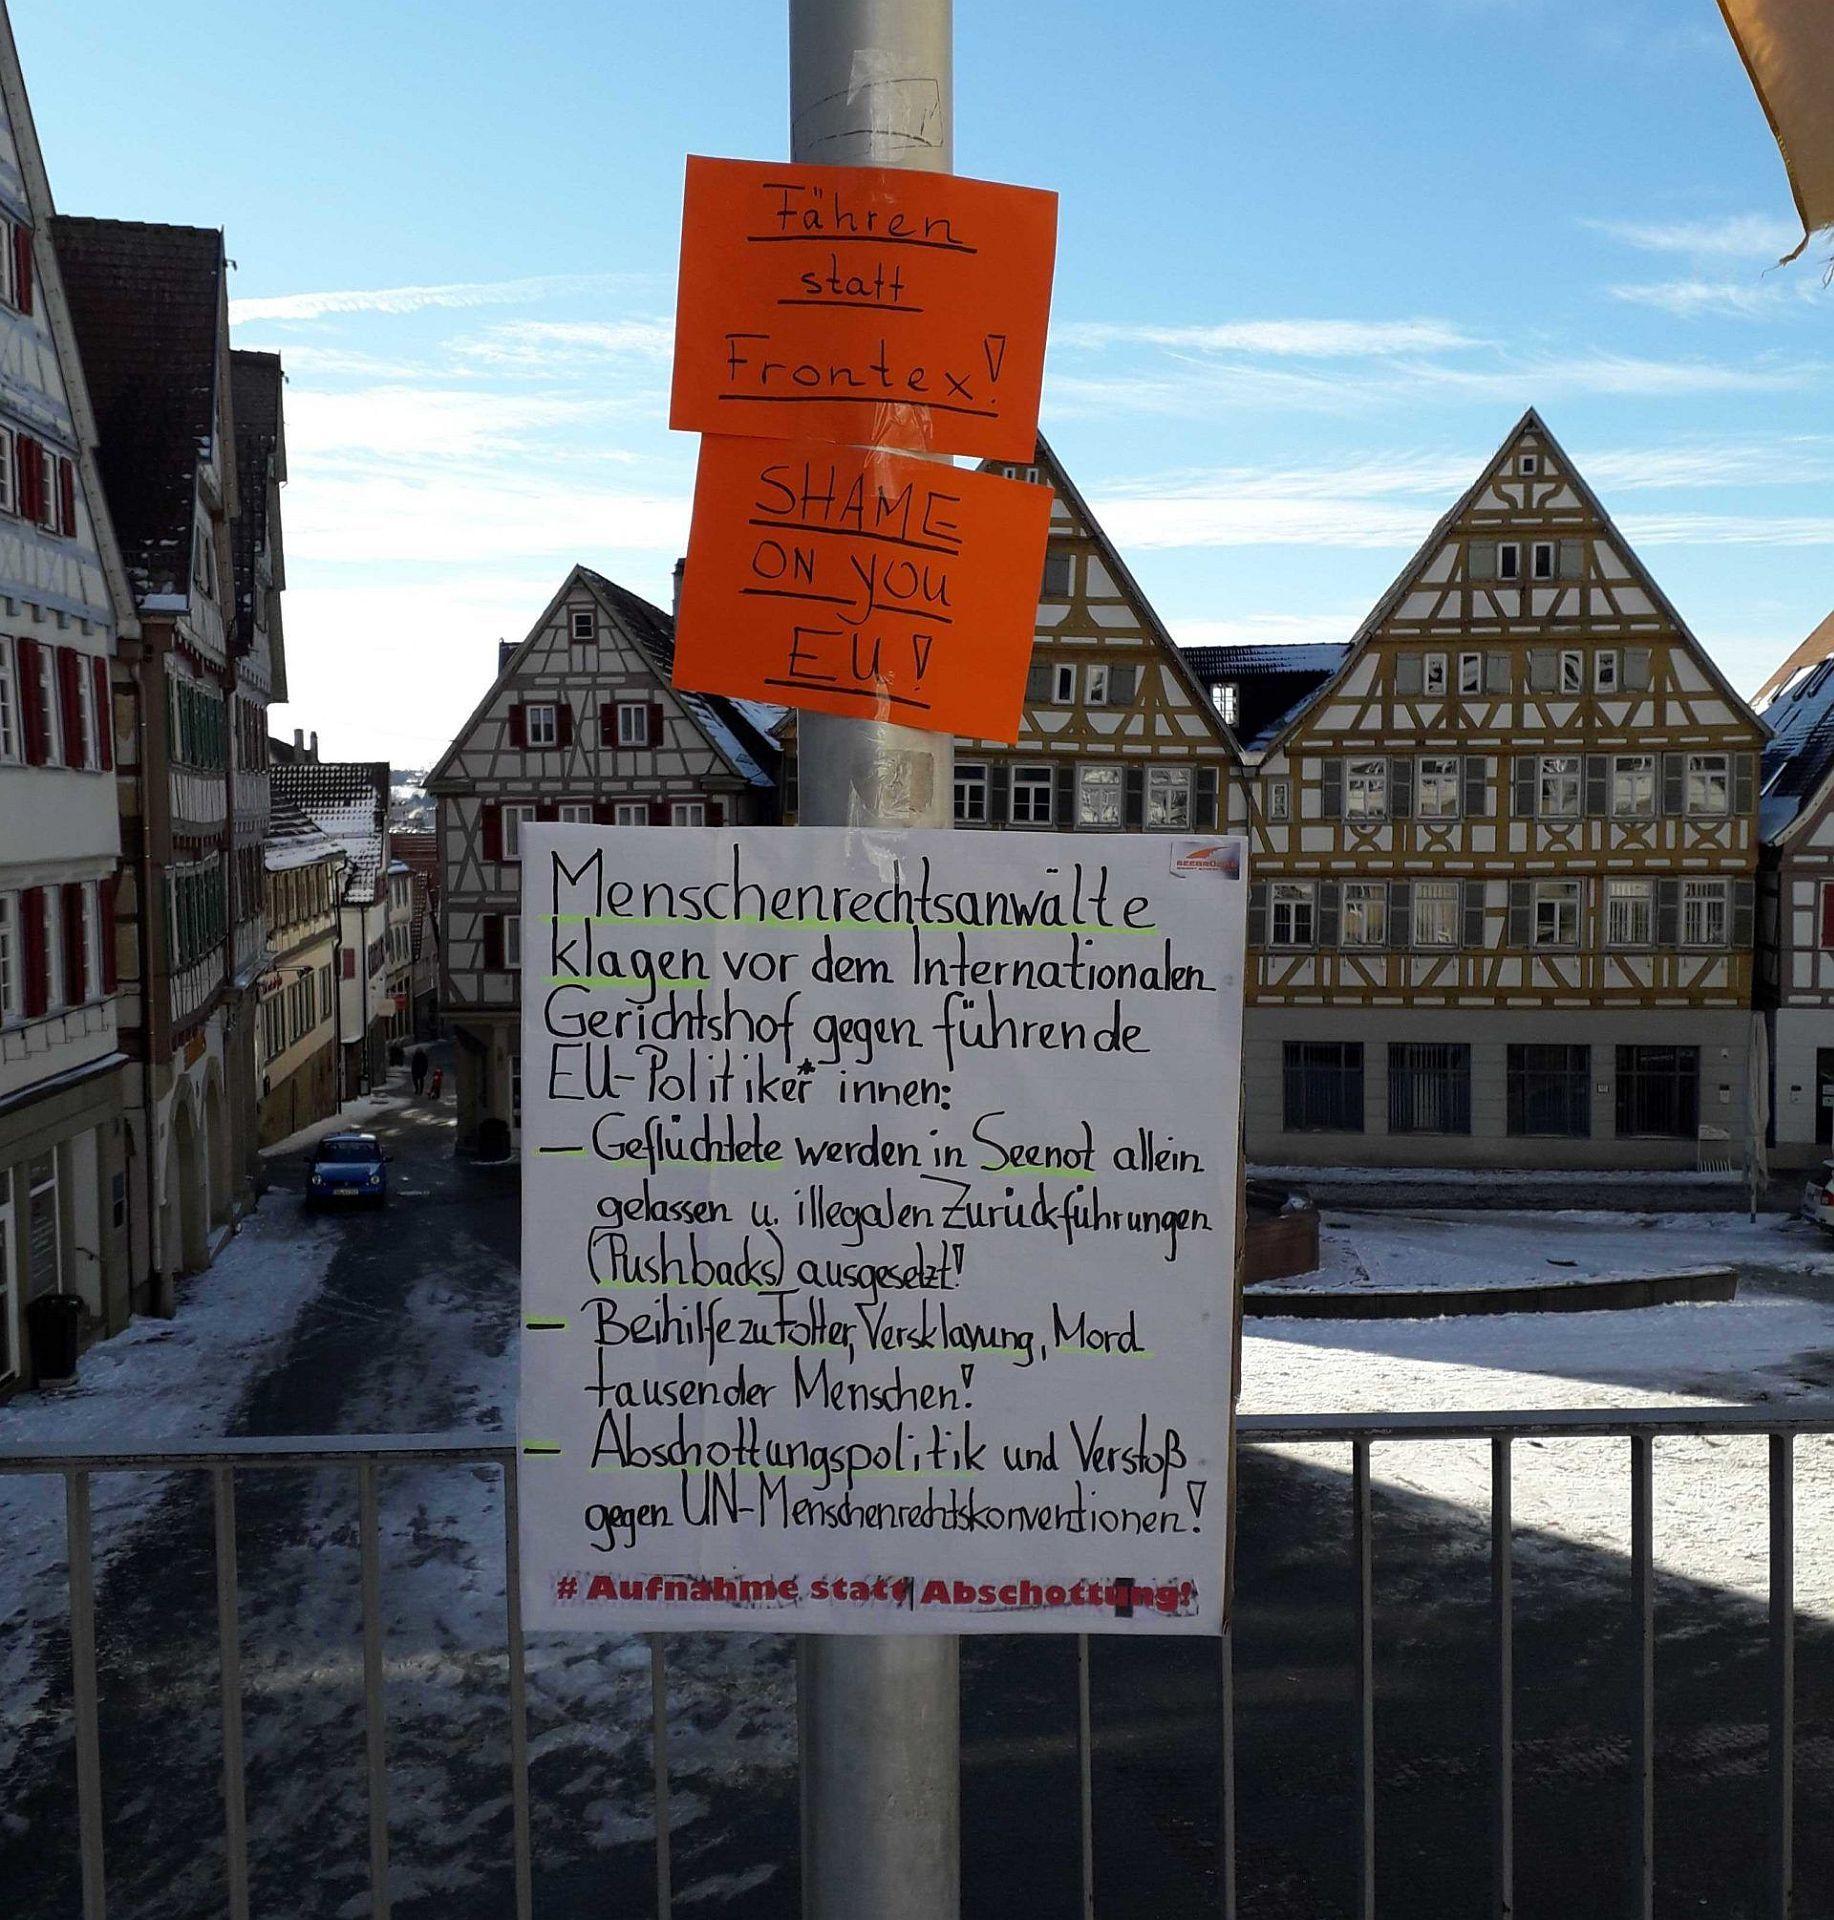 Fähren
statt
Frontex!
SHAME
ON YOU
EU!
SEEBRÜCKE
Menschenrechtsanwälte
klagen vor dem Internationalen
Gerichtshof gegen führende
EU-Politiker*innen:
– Geflüchtete werden in Seenot allein
gelassen u. illegalen Zurückführungen
(Pushbacks) ausgesetzt!
– Beihilfe zu Folter, Versklavung, Mord
tausender Menschen!
– Abschottungspolitik und Verstoß
gegen UN-Menschenrechtskonventionen!
# Aufnahme statt Abschottung!